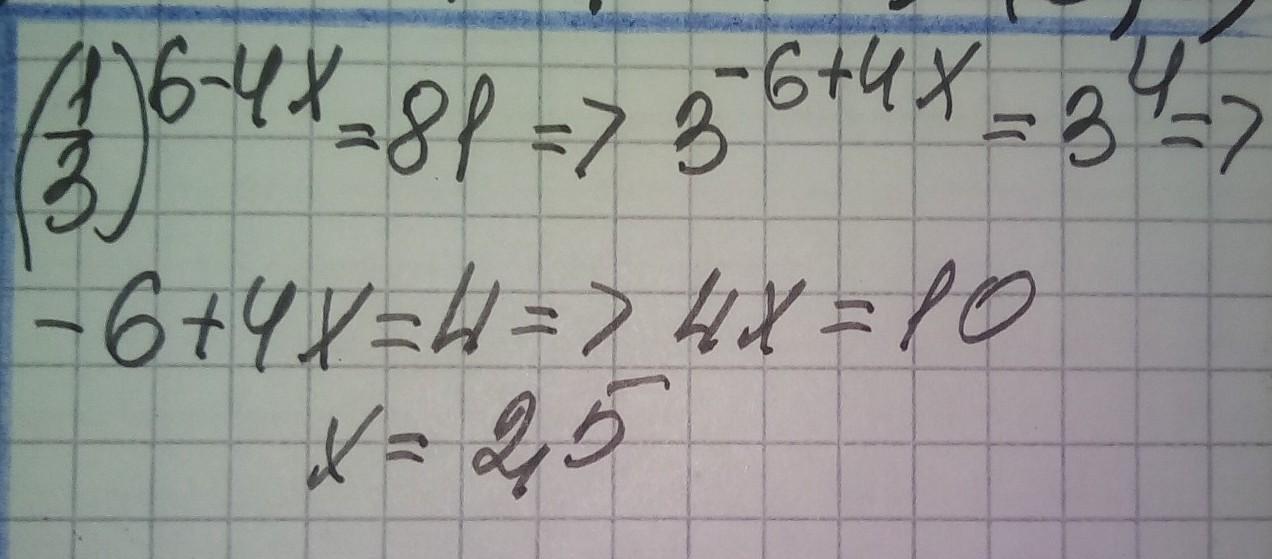 (1/3)^(6-4x) = 81 => 3^(-6+4x) = 3^4 =>
-6+4x=4 => 4x = 10
x = 2,5